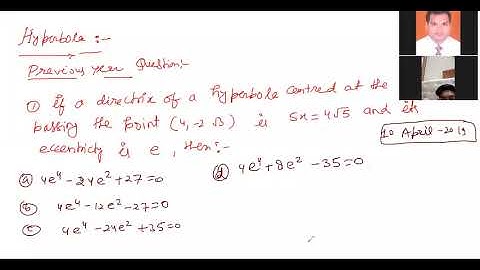 Hyperbola :-
Previous year Question:-
① if a directrix of a hyperbola centred at the
passing the point (4, -2√3) is 5x = 4√5 and its
eccentricity is e, then:-
10 April - 2019
ⓐ 4e⁴ - 24e² + 27 = 0
ⓑ 4e⁴ - 12e² - 27 = 0
ⓒ 4e⁴ - 24e² + 35 = 0
ⓓ 4e⁴ + 8e² - 35 = 0